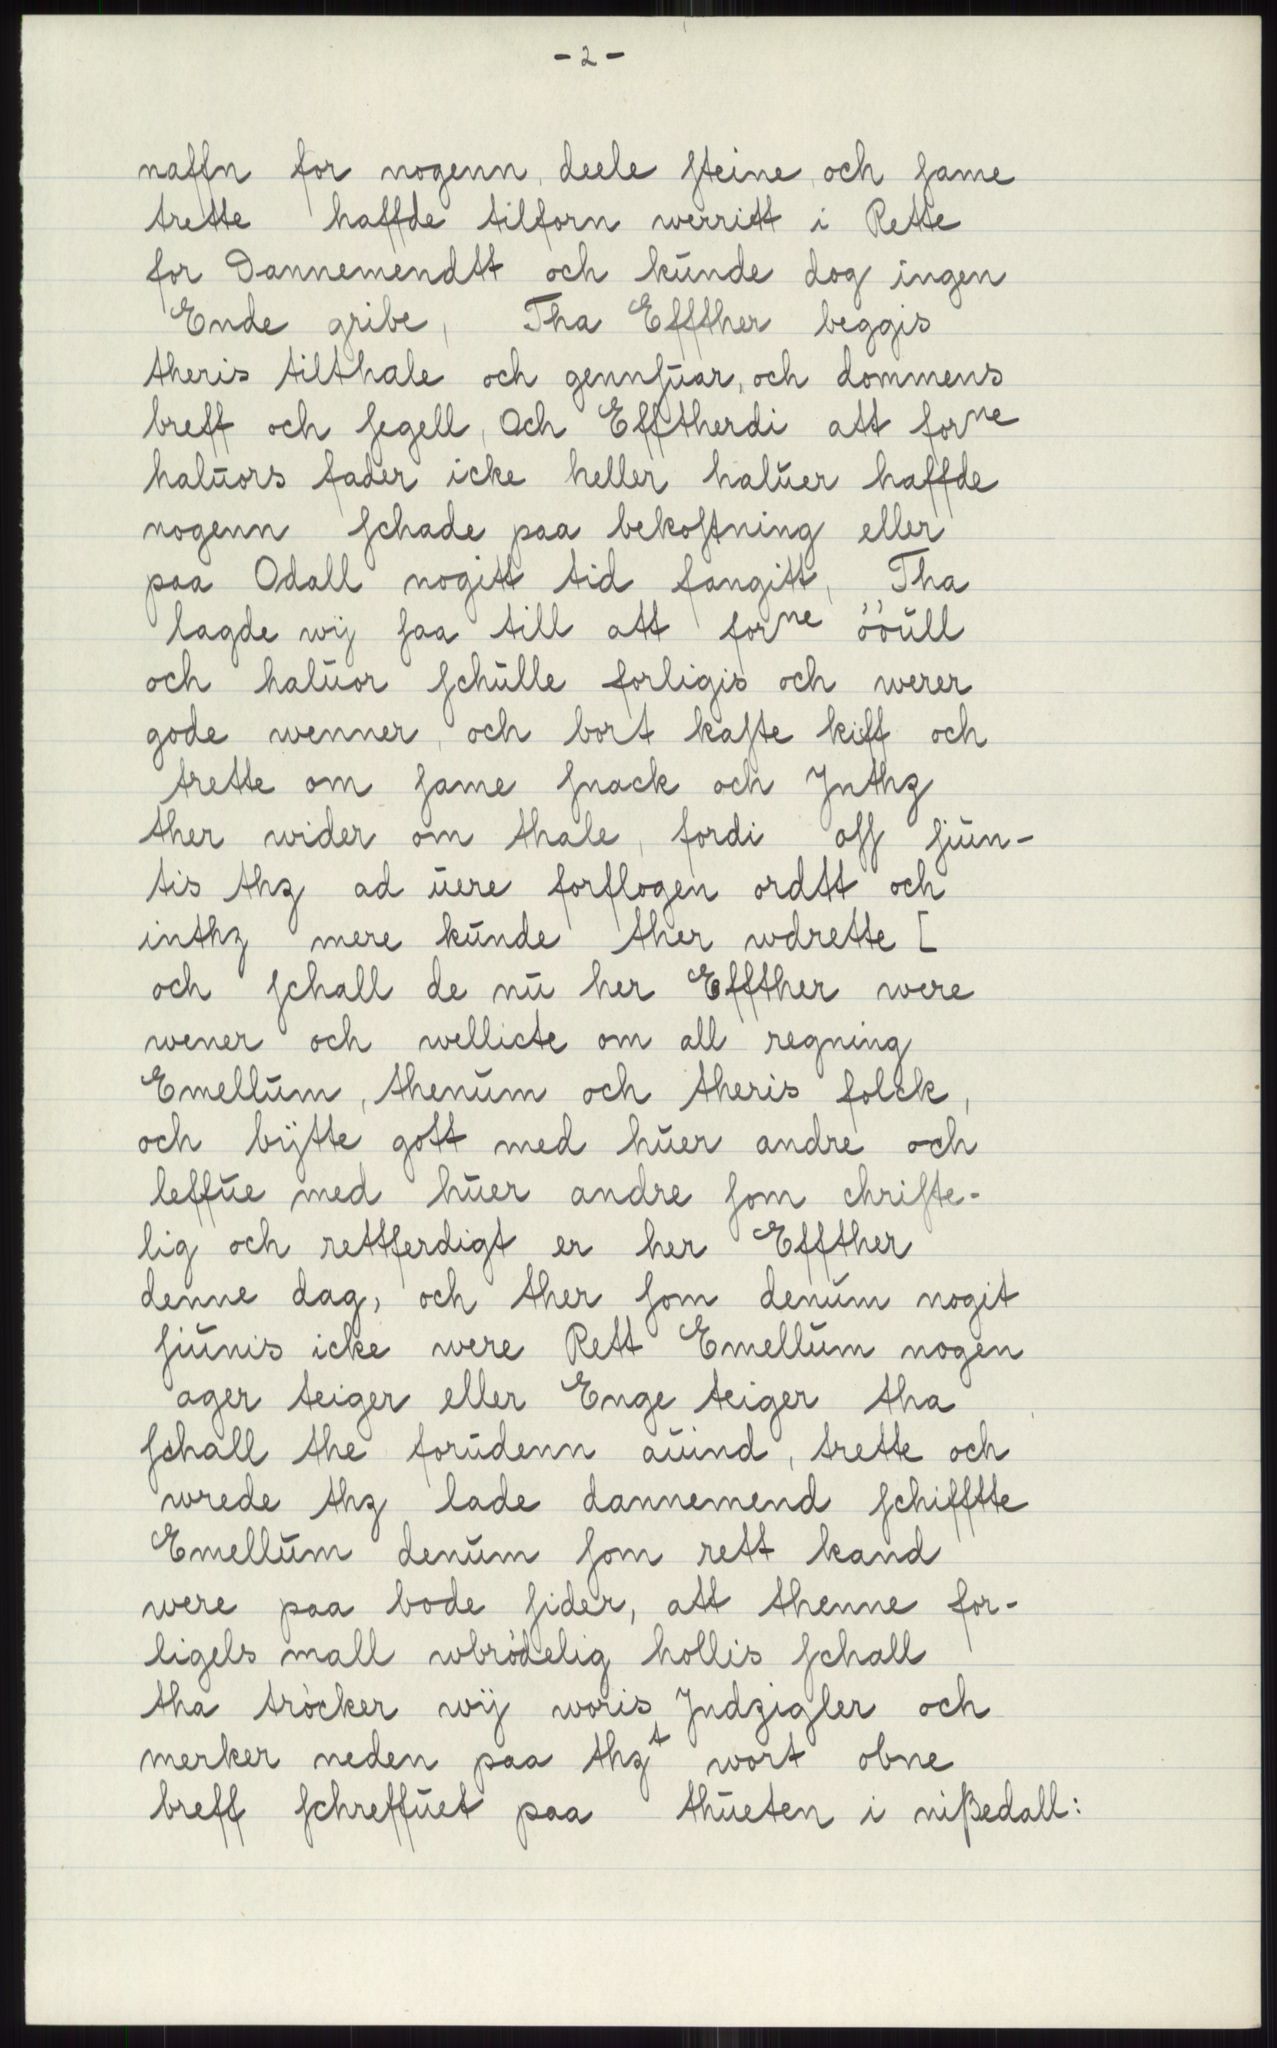 - 2 -
naffn for nogenn, deele ſteine, och ſame
trette haffde tilforn werritt i Rette
for Dannemendtt och kunde dog ingen
Ende gribe, Tha Effther beggis
theris tilthale och gennſuar, och dommens
breff och ſegell, Och Efftherdi att forⁿᵉ
haluors fader icke heller haluer haffde
nogenn ſchade paa bekoſtning eller
paa Odall nogitt tid fangitt, Tha
lagde wij ſaa till att forⁿᵉ ööüll
och haluor ſchulle forligis och werer
gode wenner, och bort kaſte kiff och
trette om ſame ſnack och Jnthz
ther wider om thale, fordi oſſ ſiun-
tis thz ad uere forflogen ordtt och
inthz mere kunde ther wdrette [
och ſchall de nu her Effther were
wener och wellicte om all regning
Emellum, thenum och theris folck,
och bÿtte gott med huer andre och
leffue med huer andre ſom chriſte-
lig och rettferdigt er her Effther
denne dag, och ther ſom denum nogit
ſiunis icke were Rett Emellum nogen
ager teiger eller Enge teiger tha
ſchall the forudenn auind, trette och
wrede thz lade dannemend ſchifftte
Emellum denum ſom rett kand
were paa bode ſider, att thenne for-
ligels mall wbrödelig hollis ſchall
tha tröcker wÿ woris Jndzigler och
merker neden paa thzᵗ wort obne
breff ſchreffuet paa thueten i nißedall: